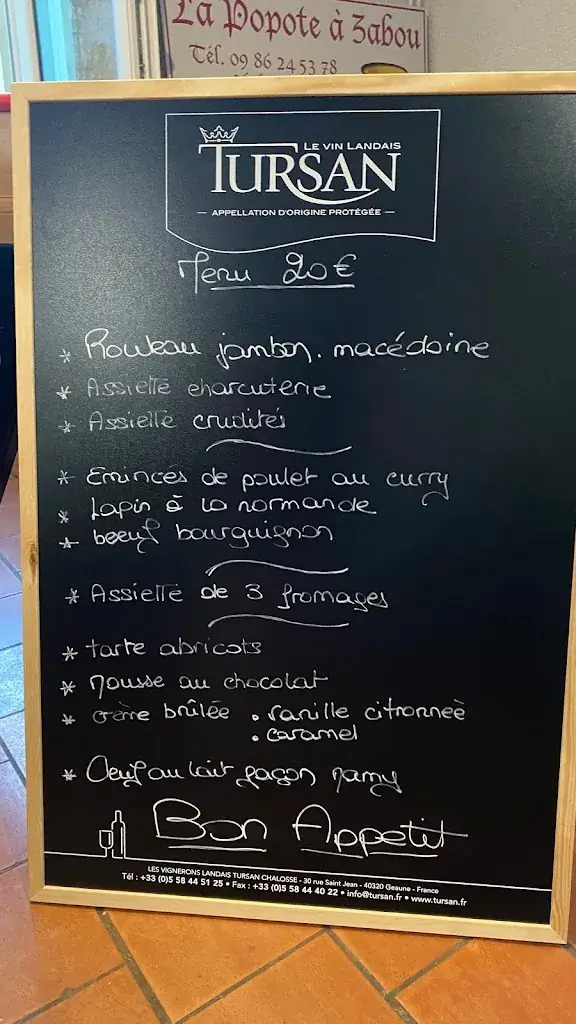 La Popote à Zabou
Tél. 09 86 24 53 78
LE VIN LANDAIS
TURSAN
— APPELLATION D'ORIGINE PROTÉGÉE —
Menu 20€
* Rouleau jambon. macédoine
* Assiette charcuterie
* Assiette crudités
* Emincés de poulet au curry
* Lapin à la normande
* boeuf bourguignon
* Assiette de 3 fromages
* tarte abricots
* Mousse au chocolat
* crème brûlée . vanille citronneè
. caramel
* Oeuf au lait façon mamy
Bon Appetit
LES VIGNERONS LANDAIS TURSAN CHALOSSE - 30 rue Saint Jean - 40320 Geaune - France
Tél : +33 (0)5 58 44 51 25 • Fax : +33 (0)5 58 44 40 22 • info@tursan.fr • www.tursan.fr